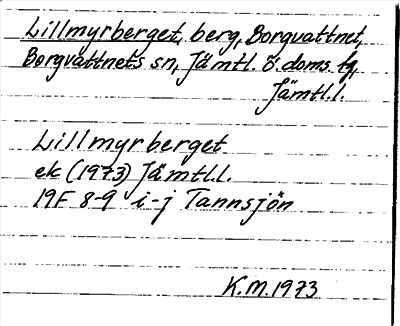 Lillmyrberget, berg, Borgvattnet,
Borgvattnets sn, Jämtl. ö. doms. tg,
Jämtl.l.
Lillmyrberget
ek (1973) Jämtl.l.
19F 8-9 i-j Tannsjön
K.M. 1973